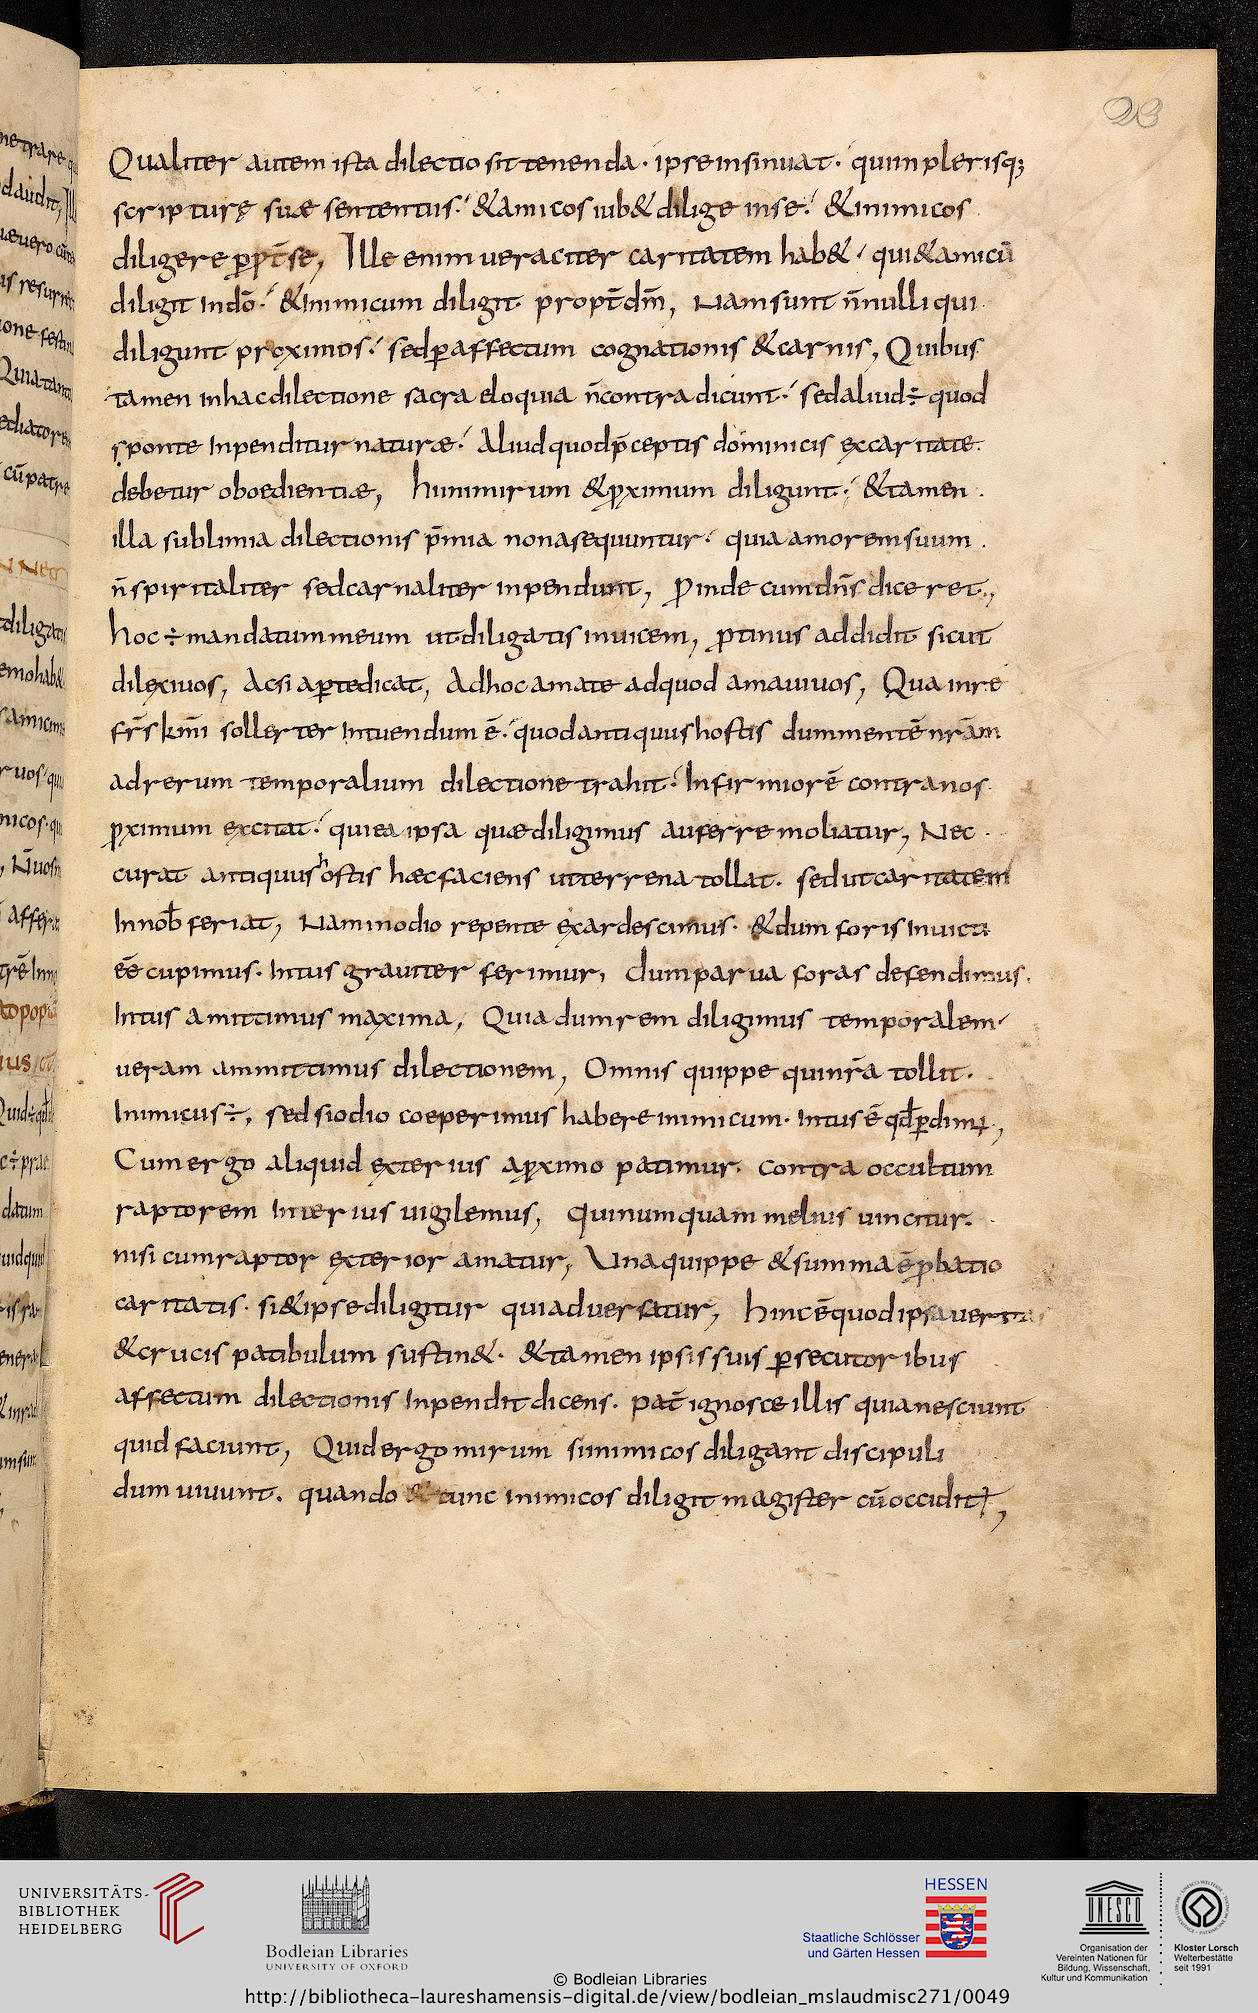 23
Qualiter autem ista dilectio sit tenenda· ipse insinuat· qui in plerisq;
scripturę suæ sententiis·' & amicos iub& dilige in se·' & inimicos
diligere ꝓpt̄ se, Ille enim ueraciter caritatem hab&·' qui & amicū
diligit in dō·' & inimicum diligit propt̄ dm̄, Nam sunt n̄nulli qui
diligunt proximos·' sed ꝑ affectum cognationis & carnis, Quibus
tamen in hac dilectione sacra eloquia n̄ contradicunt·' sed aliud ÷ quod
sponte inpenditur naturæ·' Aliud quod p̄ceptis dominicis ex caritate
debetur oboedientiæ, hi nimirum & ꝓximum diligunt·' & tamen
illa sublimia dilectionis p̄mia non asequuntur·' quia amorem suum
n̄ spiritaliter sed carnaliter inpendunt, Ꝓinde cum dn̄s diceret·,
hoc ÷ mandatum meum ut diligatis inuicem, ꝓtinus addidit sicut
dilexi uos, Acsi aꝑte dicat, Ad hoc amate ad quod amaui uos, Qua in re
fr̄s km̄i sollerter intuendum ē·' quod antiquus hostis dum mentē nr̄am
ad rerum temporalium dilectione trahit·' infirmiorē contra nos
ꝓximum excitat·' qui ea ipsa quæ diligimus auferre moliatur, Nec
curat antiquus hostis hæc faciens ut terrena tollat· sed ut caritatem
in nob̄ feriat, Nam in odio repente exardescimus· & dum foris inuicti
ēē cupimus· intus grauiter ferimur, dum parua foras defendimus·
intus amittimus maxima, Quia dum rem diligimus temporalem·'
ueram ammittimus dilectionem, Omnis quippe qui nr̄a tollit·
inimicus ÷, sed si odio coeperimus habere inimicum· intus ē qd̄ ꝑdimꝰ·,
Cum ergo aliquid exterius a ꝓximo patimur· contra occultum
raptorem interius uigilemus, qui numquam melius uincitur·
nisi cum raptor exterior amatur, Una quippe & summa ē ꝓbatio
caritatis· si & ipse diligitur qui aduersatur, hinc ē quod ipsa uerita
& crucis patibulum sustin&· & tamen ipsis suis ꝑsecutoribus
affectum dilectionis inpendit dicens· pat̄ ignosce illis quia nesciunt
quid faciunt, Quid ergo mirum si inimicos diligant discipuli
dum uiuunt· quando & tunc inimicos diligit magister cū occidit̄,
UNIVERSITÄTS-
BIBLIOTHEK
HEIDELBERG
Bodleian Libraries
UNIVERSITY OF OXFORD
HESSEN
Staatliche Schlösser
und Gärten Hessen
UNESCO
Organisation der
Vereinten Nationen für
Bildung, Wissenschaft,
Kultur und Kommunikation
Kloster Lorsch
Welterbestätte
seit 1991
© Bodleian Libraries
http://bibliotheca-laureshamensis-digital.de/view/bodleian_mslaudmisc271/0049